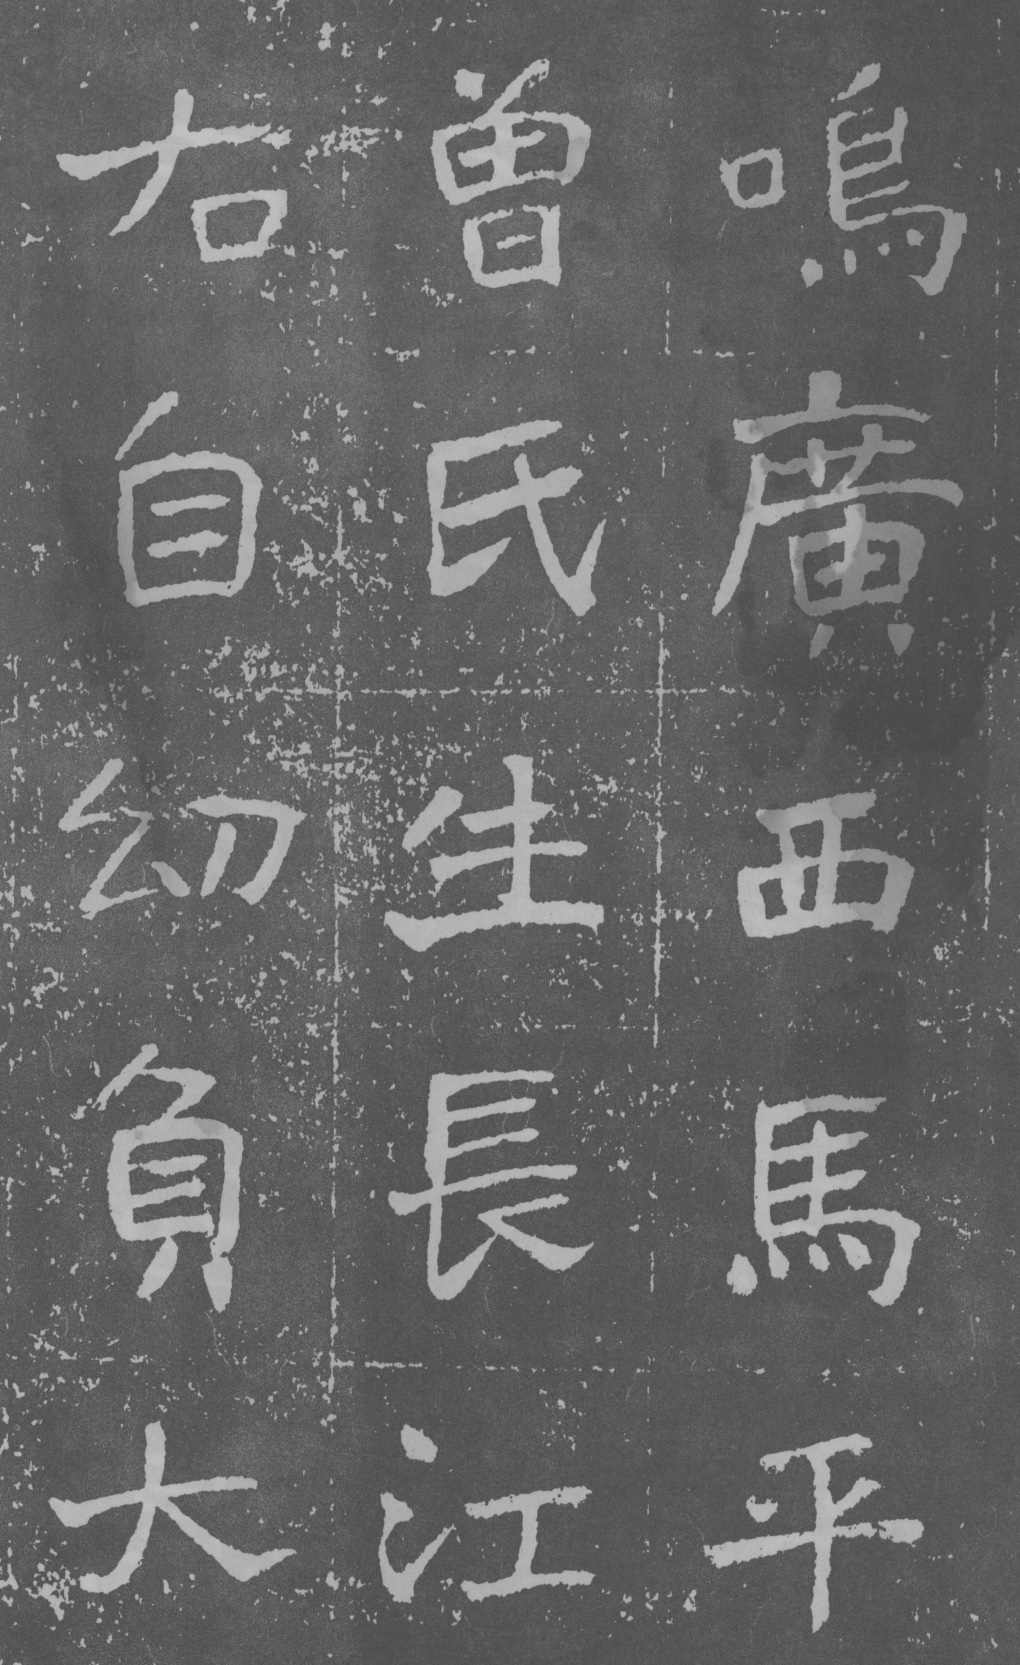 鳴廣西馬平
曾氏生長江
右自幼負大